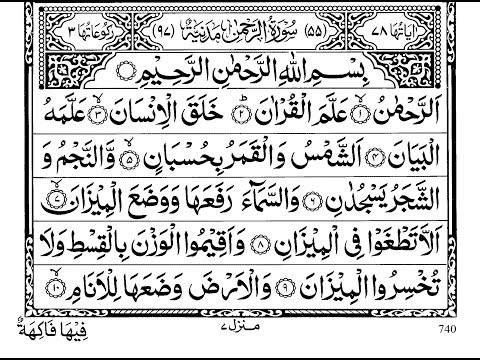 اٰيَاتُهَا ٧٨ (٥٥) سُوْرَةُ الرَّحْمٰنِ مَدَنِيَّةٌ (٩٧) رُكُوْعَاتُهَا ٣
بِسْمِ اللّٰهِ الرَّحْمٰنِ الرَّحِيْمِ
اَلرَّحْمٰنُ ١ عَلَّمَ الْقُرْاٰنَ ٢ خَلَقَ الْاِنْسَانَ ٣ عَلَّمَهُ
الْبَيَانَ ٤ اَلشَّمْسُ وَالْقَمَرُ بِحُسْبَانٍ ٥ وَّالنَّجْمُ وَ
الشَّجَرُ يَسْجُدٰنِ ٦ وَالسَّمَآءَ رَفَعَهَا وَوَضَعَ الْمِيْزَانَ ٧
اَلَّا تَطْغَوْا فِى الْمِيْزَانِ ٨ وَاَقِيْمُوا الْوَزْنَ بِالْقِسْطِ وَلَا
تُخْسِرُوا الْمِيْزَانَ ٩ وَالْاَرْضَ وَضَعَهَا لِلْاَنَامِ ١٠
فِيْهَا فَاكِهَةٌ منزل ٧ 740